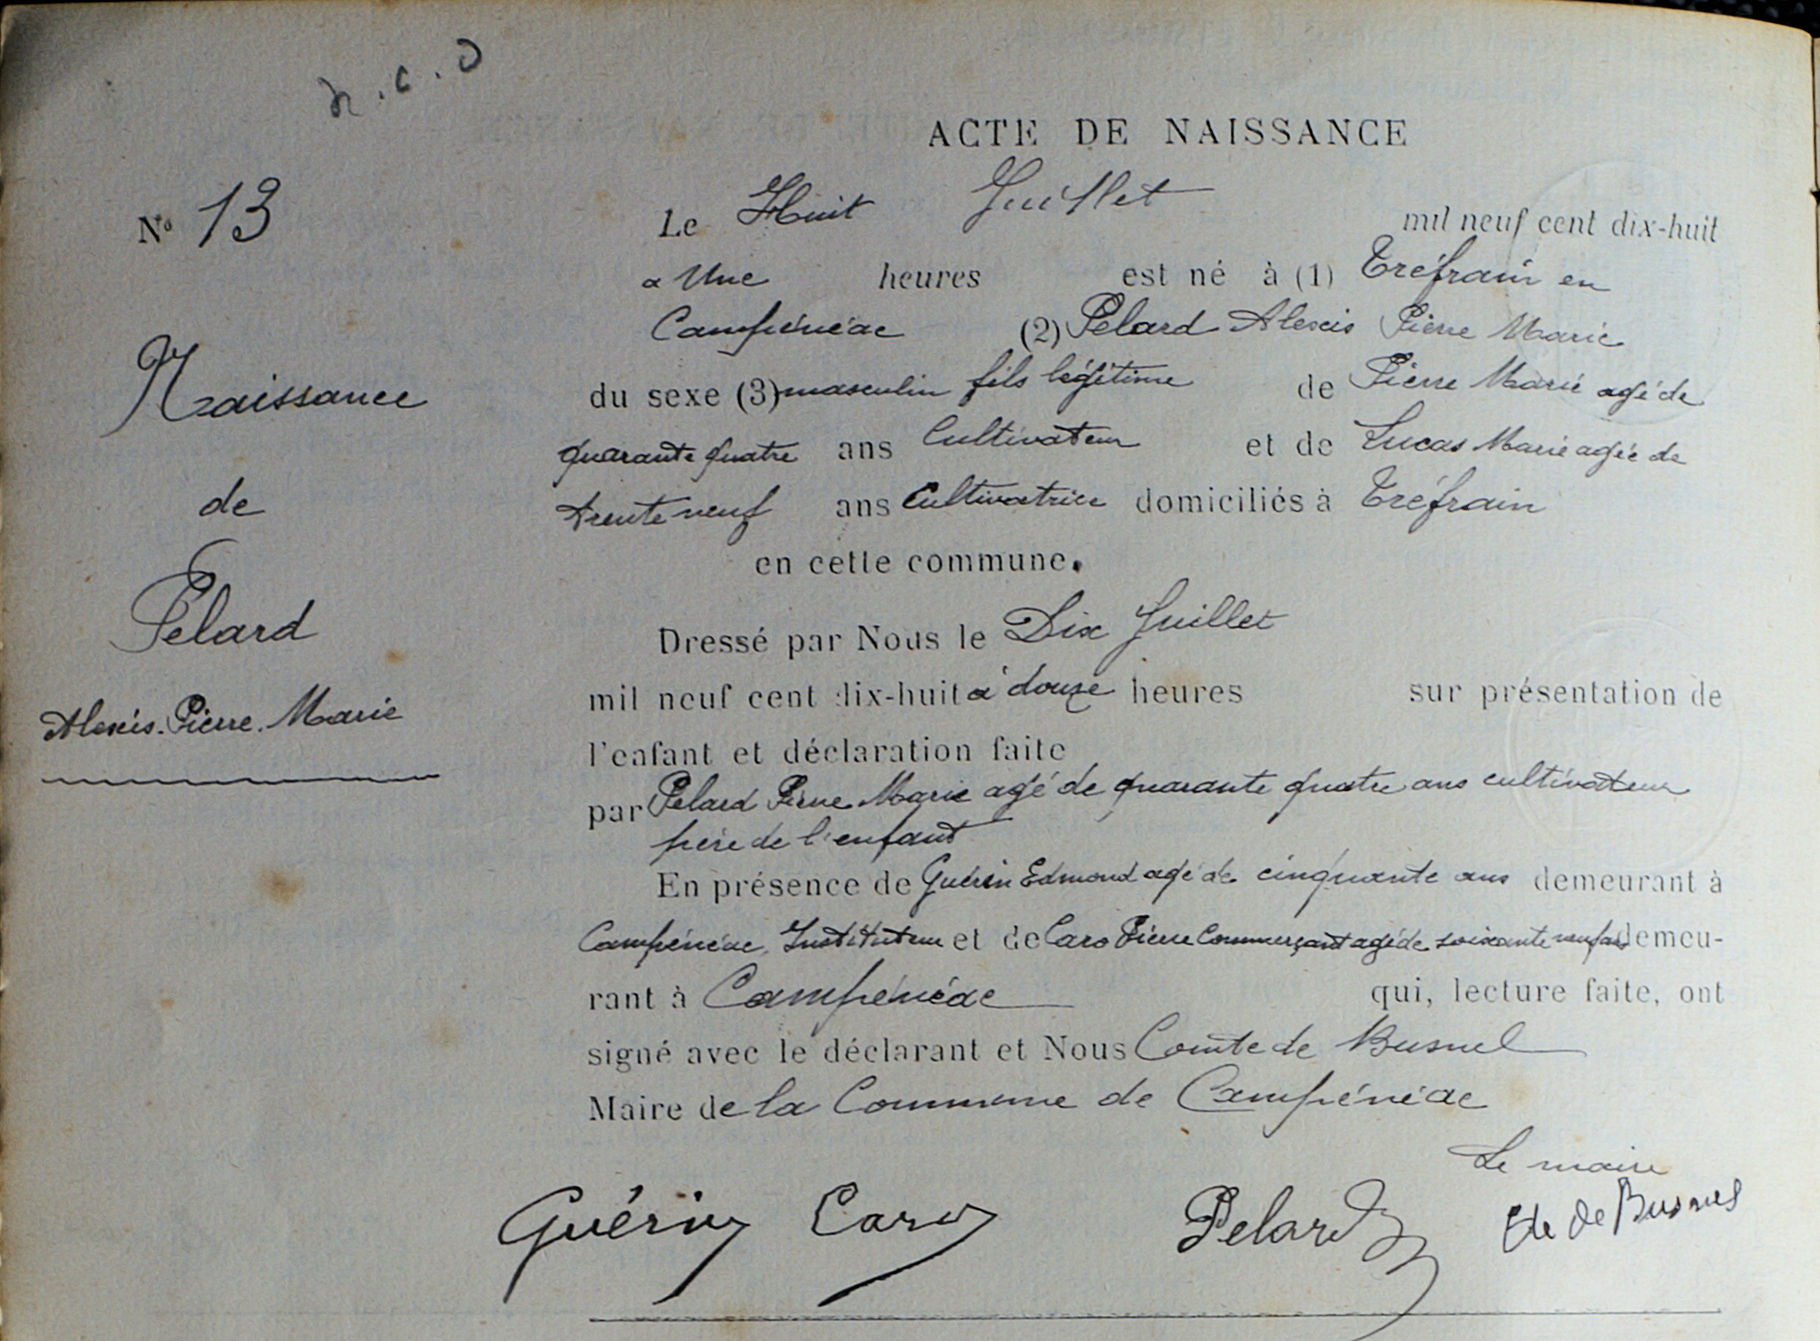 n.c.o
ACTE DE NAISSANCE
N° 13
Le Huit Juillet mil neuf cent dix-huit
à Une heures est né à (1) Tréfrain en
Campénéac (2) Pelard Alexis Pierre Marie
Naissance
du sexe (3) masculin fils légitime de Pierre Marie agé de
quarante quatre ans Cultivateur et de Lucas Marie agée de
de
trente neuf ans Cultivatrice domiciliés à Tréfrain
en cette commune.
Pelard
Dressé par Nous le Dix Juillet
mil neuf cent dix-huit à douze heures sur présentation de
Alexis. Pierre. Marie
l'enfant et déclaration faite
par Pelard Pierre Marie agé de quarante quatre ans cultivateur
père de l'enfant
En présence de Guérin Edmond agé de cinquante ans demeurant à
Campénéac, Instituteur et de Caro Pierre Commerçant agé de soixante neuf ans demeu-
rant à Campénéac qui, lecture faite, ont
signé avec le déclarant et Nous Comte de Busnel
Maire de la Commune de Campénéac
Le maire
Guérin Caro Pelard Cte de Busnel